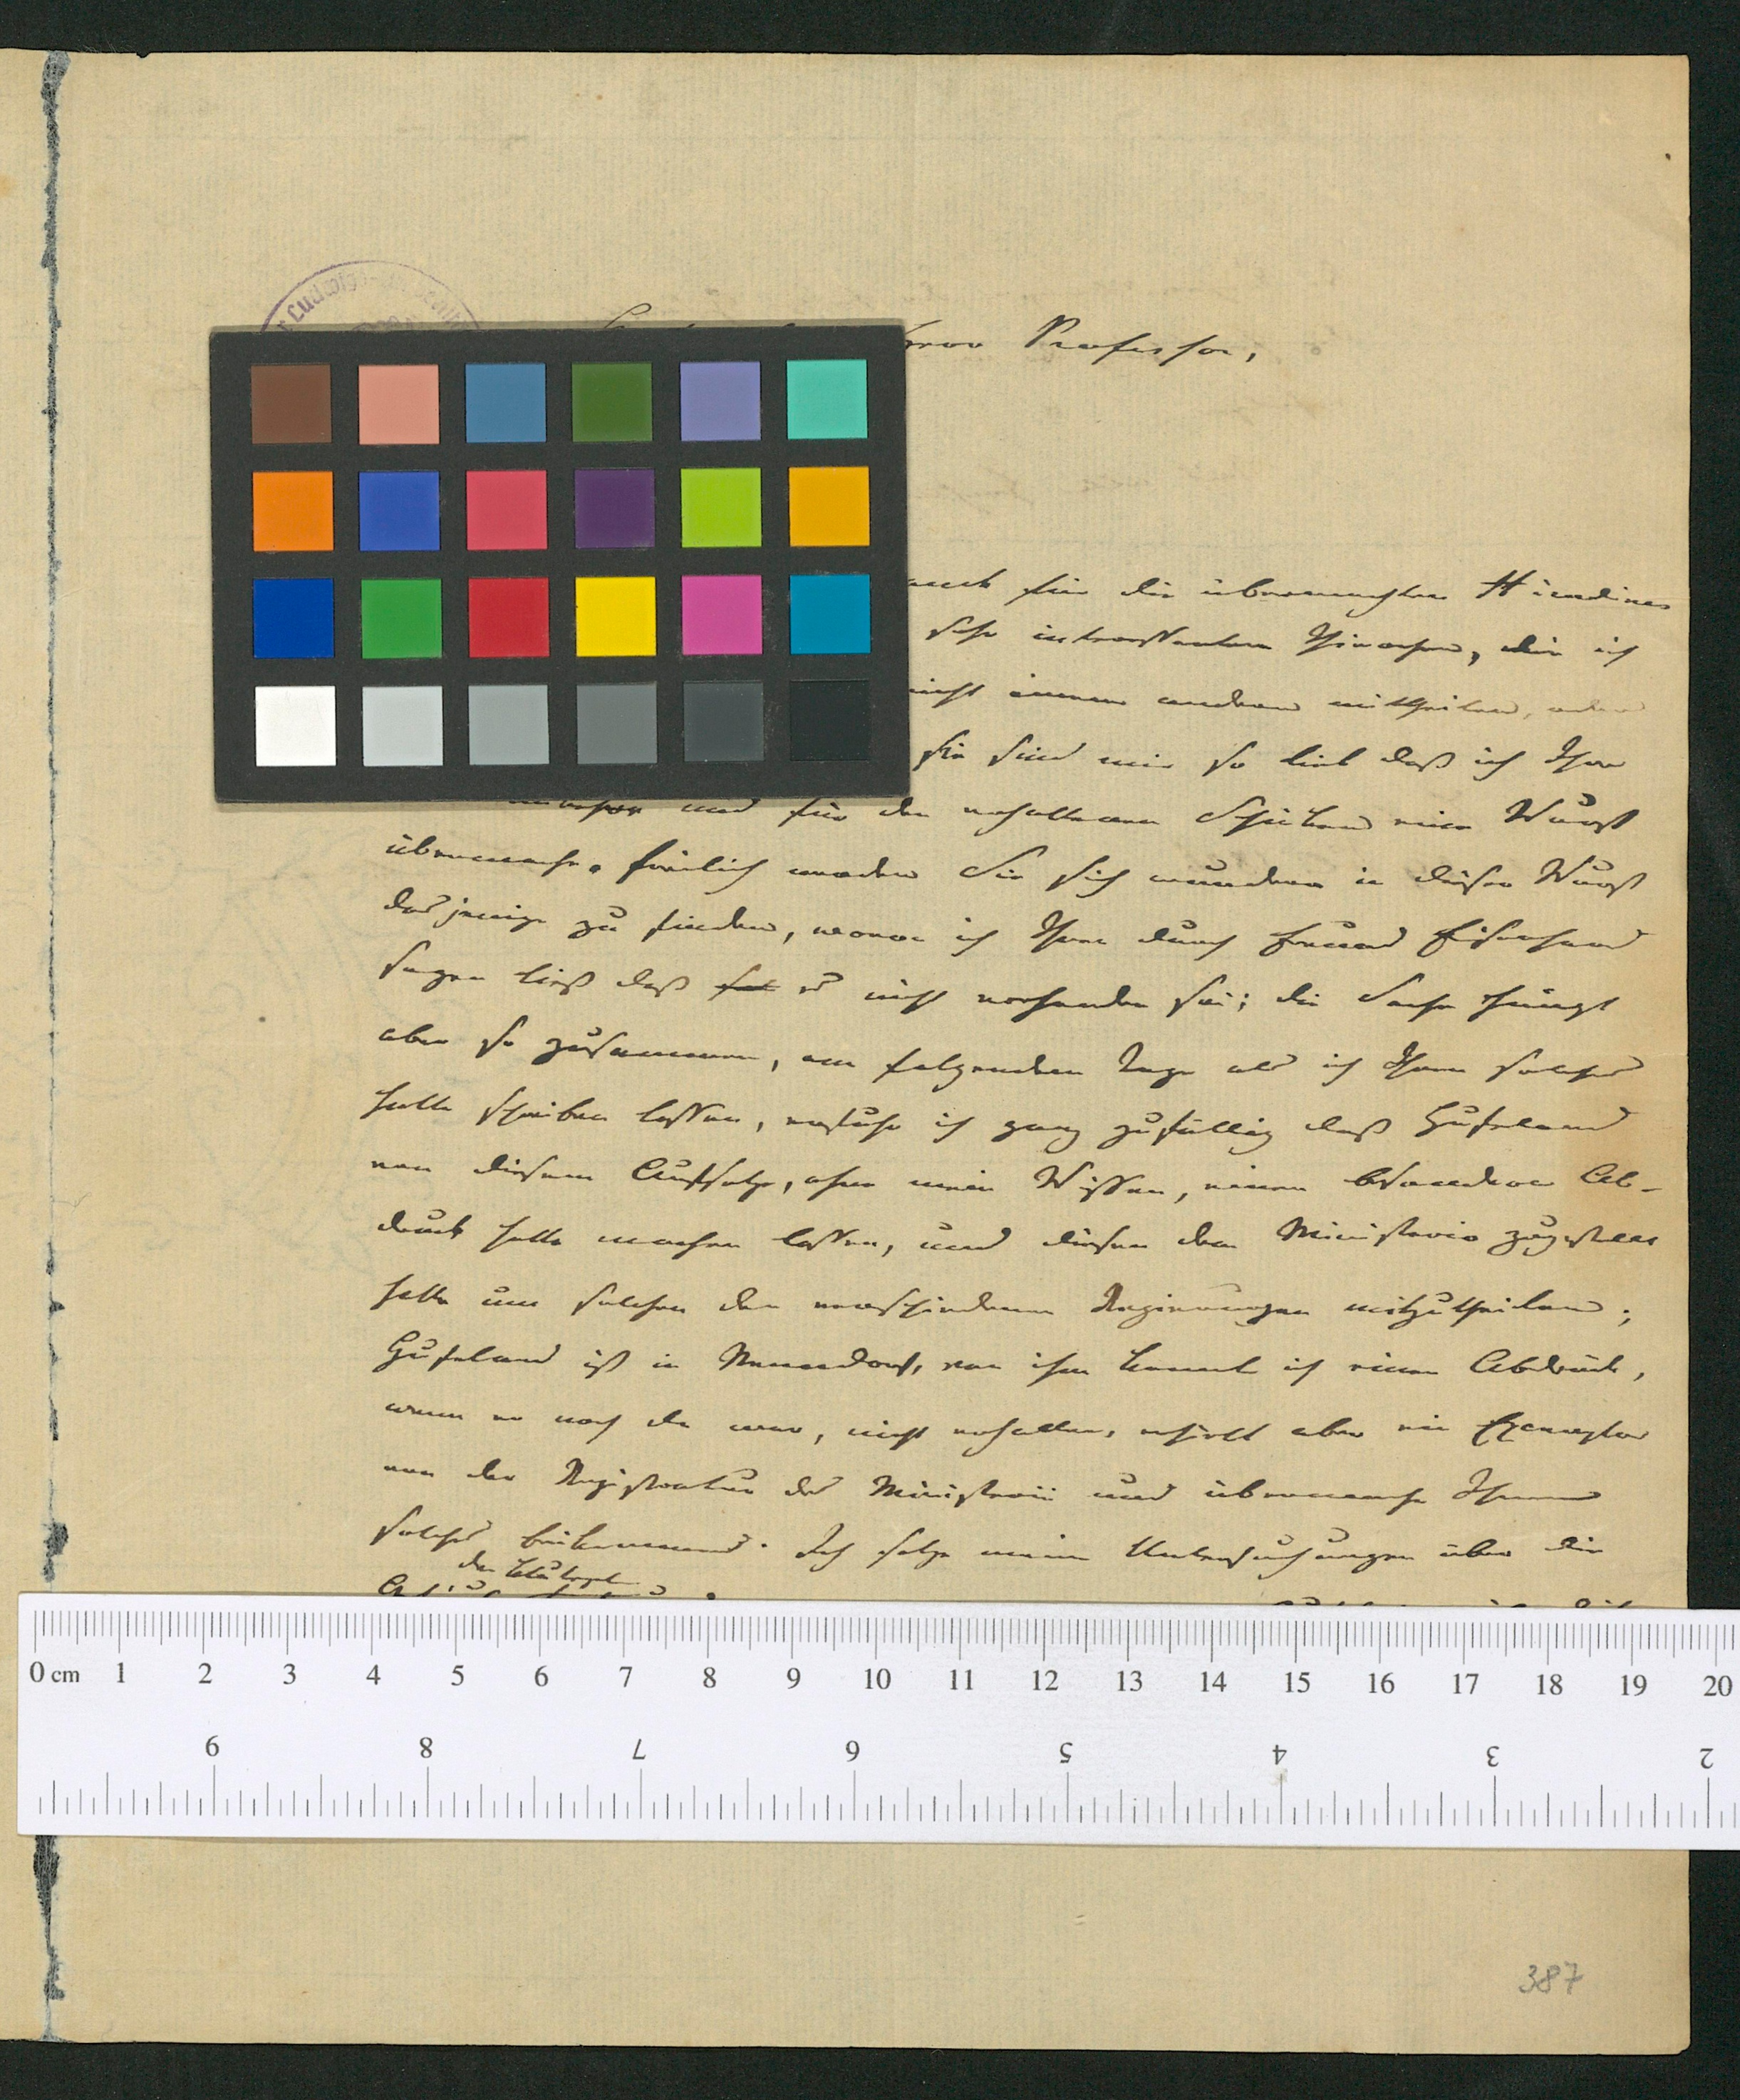 Ludwig
Herr Professor,
für die übermachten Hirudines
sehr interessanten Thierchen, die ich
nicht immer andern mittheilen,
sie sind mir so lieb daß ich Ihnen
und für den erhaltenen Schinken eine Wurst
übermache. freilich werden Sie sich wundern in dieser Wurst
dasjenige zu finden, wovon ich Ihnen durch Freund
sagen ließ daß es nicht vorhanden sei; die Sache hängt
aber so zusammen, am folgenden Tage als ich Ihnen solches
hatte schreiben lassen, erfuhr ich ganz zufällig daß Hufeland
von diesem Aufsatze, ohne mein Wissen, einen besondern Ab-
druck hatte machen lassen, und diesen dem Ministerio zugestellt
hatte um solchen den verschiedenen Regierungen mitzutheilen;
Hufeland ist in Nenndorf, von ihm konnte ich einen Abdruck,
wenn er noch da war, nicht erhalten, erhielt aber ein Exemplar
von der Registratur des Ministerii und übermache Ihnen
solches beikommend. Ich setze meine Untersuchungen über die
der Blutegel
0 cm 1 2 3 4 5 6 7 8 9 10 11 12 13 14 15 16 17 18 19 20
9 8 7 6 5 4 3 2
387